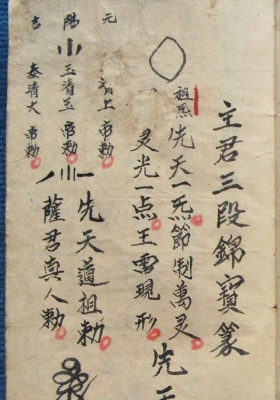 主君三段錦寶篆
祖炁
先天一炁節制萬灵
灵光一点王灵現形
先天
元
陽
吉
上帝勅
玉清玉帝勅
泰清大帝勅
先天道祖勅
薩君真人勅